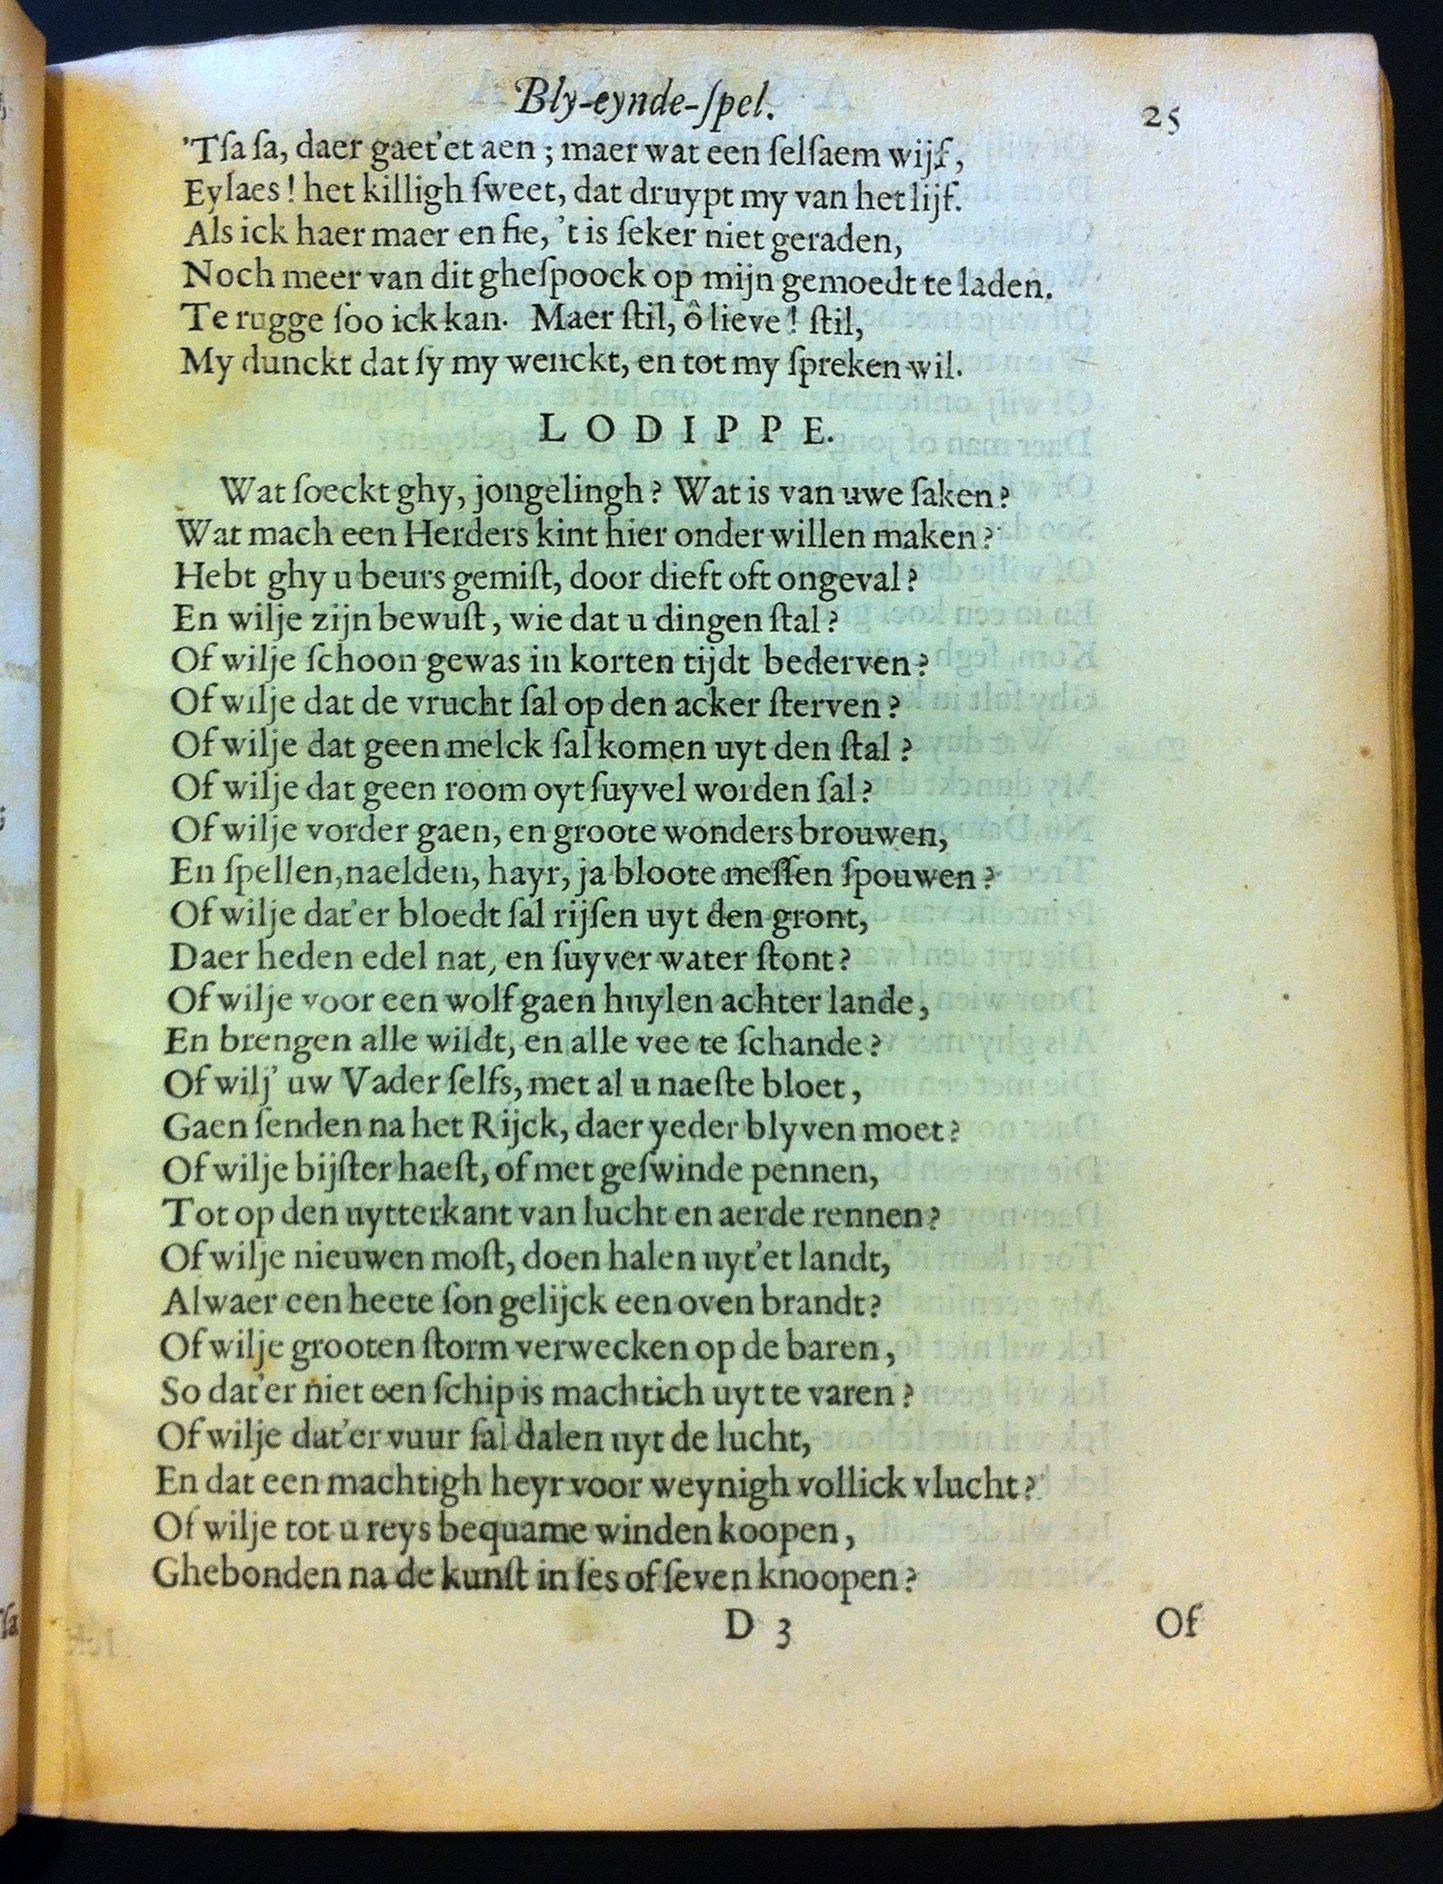 Bly-eynde-ſpel. 25
'Tſa ſa, daer gaet'et aen ; maer wat een ſelſaem wijf,
Eylaes! het killigh ſweet, dat druypt my van het lijf.
Als ick haer maer en ſie, 't is ſeker niet geraden,
Noch meer van dit gheſpoock op mijn gemoedt te laden.
Te rugge ſoo ick kan. Maer ſtil, ô lieve! ſtil,
My dunckt dat ſy my wenckt, en tot my ſpreken wil.
LODIPPE.
Wat ſoeckt ghy, jongelingh? Wat is van uwe ſaken?
Wat mach een Herders kint hier onder willen maken?
Hebt ghy u beurs gemiſt, door dieft oft ongeval?
En wilje zijn bewuſt, wie dat u dingen ſtal?
Of wilje ſchoon gewas in korten tijdt bederven?
Of wilje dat de vrucht ſal op den acker ſterven?
Of wilje dat geen melck ſal komen uyt den ſtal?
Of wilje dat geen room oyt ſuyvel worden ſal?
Of wilje vorder gaen, en groote wonders brouwen,
En ſpellen, naelden, hayr, ja bloote meſſen ſpouwen?
Of wilje dat'er bloedt ſal rijſen uyt den gront,
Daer heden edel nat, en ſuyver water ſtont?
Of wilje voor een wolf gaen huylen achter lande,
En brengen alle wildt, en alle vee te ſchande?
Of wilj' uw Vader ſelfs, met al u naeſte bloet,
Gaen ſenden na het Rijck, daer yeder blyven moet?
Of wilje bijſter haeſt, of met geſwinde pennen,
Tot op den uytterkant van lucht en aerde rennen?
Of wilje nieuwen moſt, doen halen uyt'et landt,
Alwaer een heete ſon gelijck een oven brandt?
Of wilje grooten ſtorm verwecken op de baren,
So dat'er niet een ſchip is machtich uyt te varen?
Of wilje dat'er vuur ſal dalen uyt de lucht,
En dat een machtigh heyr voor weynigh vollick vlucht?
Of wilje tot u reys bequame winden koopen,
Ghebonden na de kunſt in ſes of ſeven knoopen?
D 3 Of